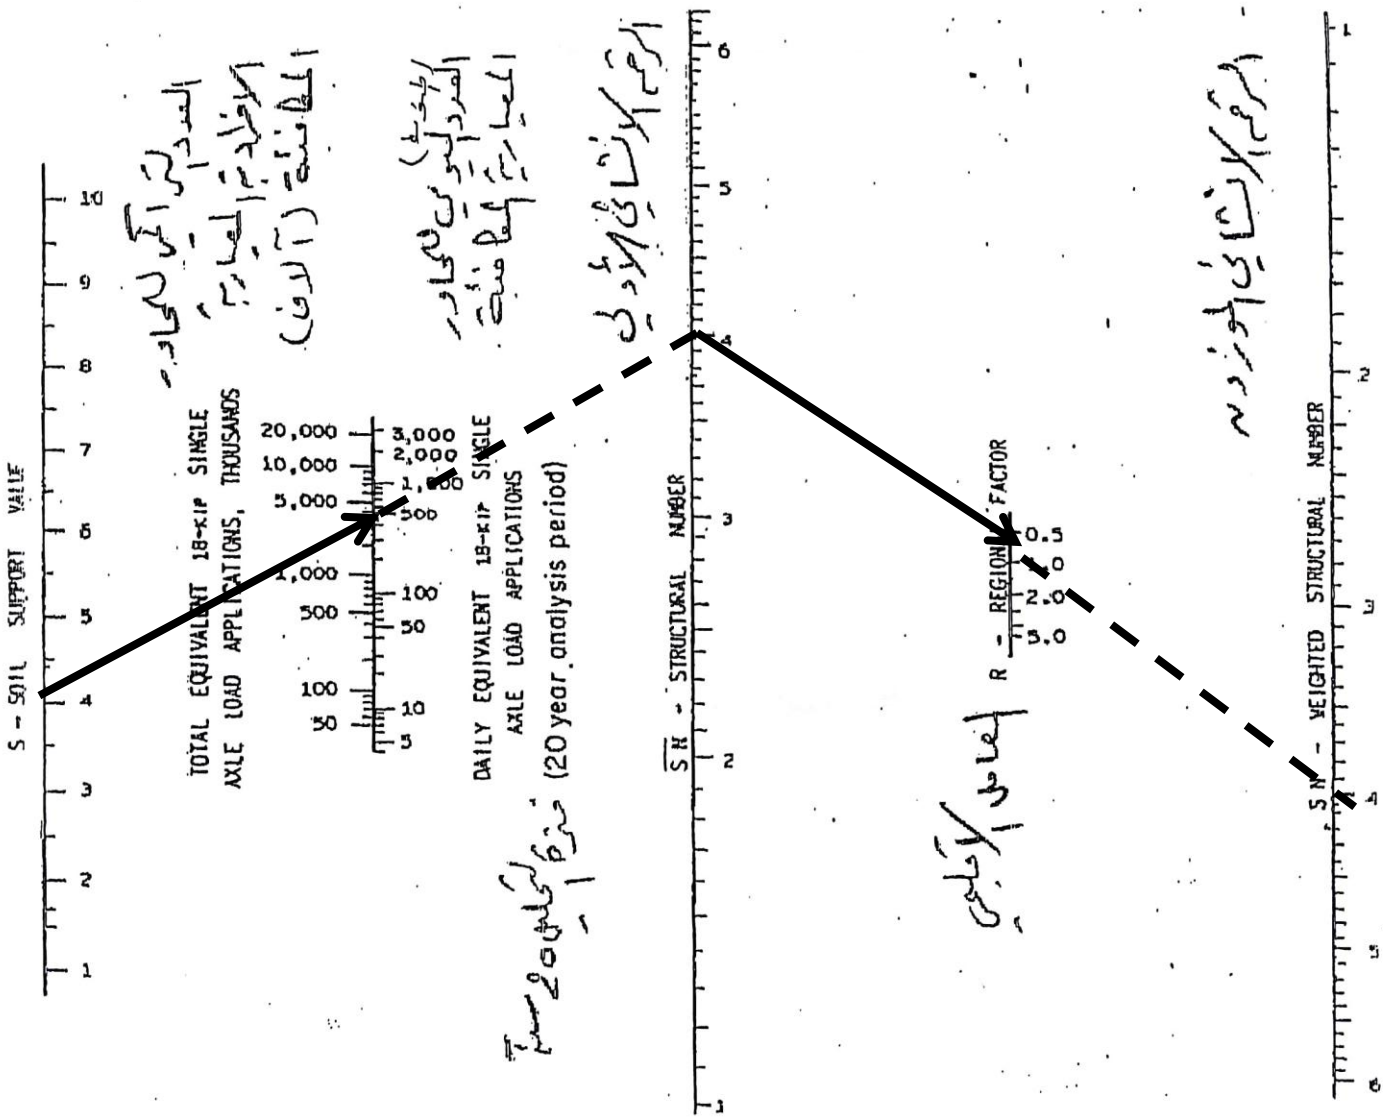 S - SOIL SUPPORT VALUE
10
9
8
7
6
5
4
3
2
1
العدد التراكمي للمحاور
الأحادية المعيارية
المكافئة (آلاف)
TOTAL EQUIVALENT 18-KIP SINGLE
AXLE LOAD APPLICATIONS, THOUSANDS
20,000
10,000
5,000
1,000
500
100
50
3,000
2,000
1,000
500
100
50
10
5
العدد اليومي للمحاور
المعيارية المكافئة
DAILY EQUIVALENT 18-KIP SINGLE
AXLE LOAD APPLICATIONS
(20 year analysis period)
20 سنة
الرقم الإنشائي الأولي
SN - STRUCTURAL NUMBER
6
5
4
3
2
1
العامل الإقليمي
R - REGION FACTOR
0.5
1.0
2.0
5.0
الرقم الإنشائي الموزون
SN - WEIGHTED STRUCTURAL NUMBER
1
2
3
4
5
6